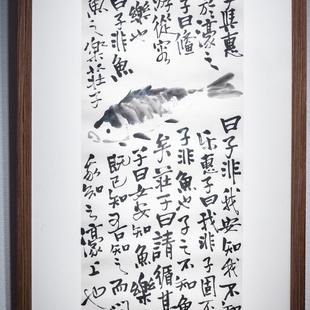 子與惠
於濠之
子曰儵
游從容
樂也
曰子非魚
魚之樂莊子
曰子非我安知我不知
乐惠子曰我非子固不
子非魚也子之不知魚
矣莊子曰請循其
子曰女安知魚樂
既已知吾知之而問
我知之濠上也